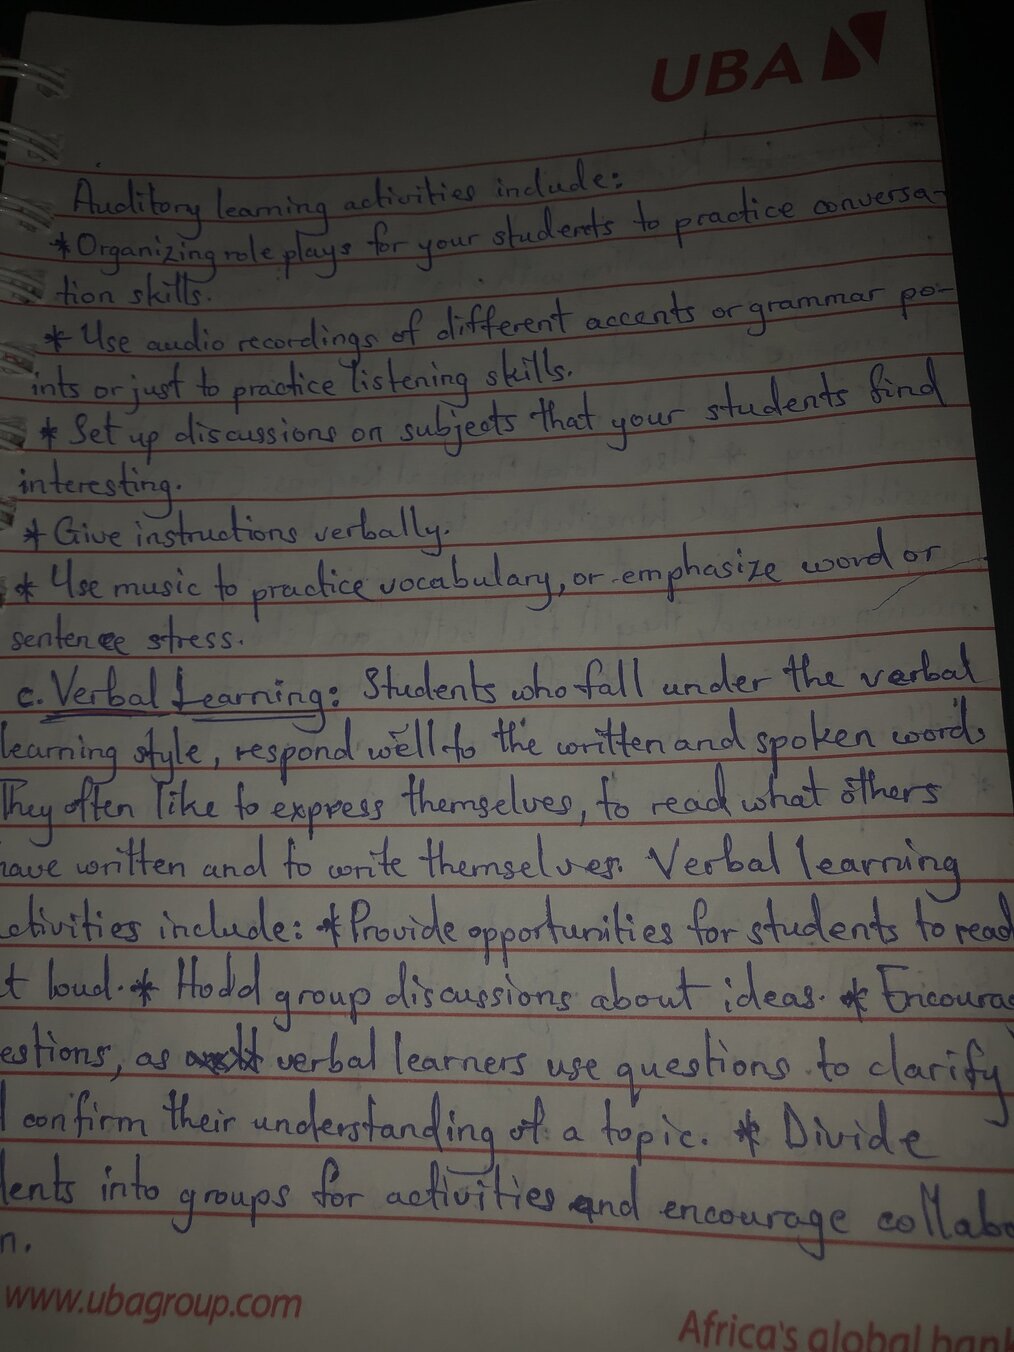 UBA
Auditory learning activities include:
* Organizing role plays for your students to practice conversa-
tion skills.
* Use audio recordings of different accents or grammar po-
ints or just to practice listening skills.
* Set up discussions on subjects that your students find
interesting.
* Give instructions verbally.
* Use music to practice vocabulary, or emphasize word or
sentence stress.
c. Verbal Learning: Students who fall under the verbal
learning style, respond well to the written and spoken words
They often like to express themselves, to read what others
have written and to write themselves. Verbal learning
ctivities include: * Provide opportunities for students to read
t loud. * Hodd group discussions about ideas. * Encourag
estions, as verbal learners use questions to clarify
d confirm their understanding of a topic. * Divide
dents into groups for activities and encourage collabo
n.
www.ubagroup.com
Africa's global bank